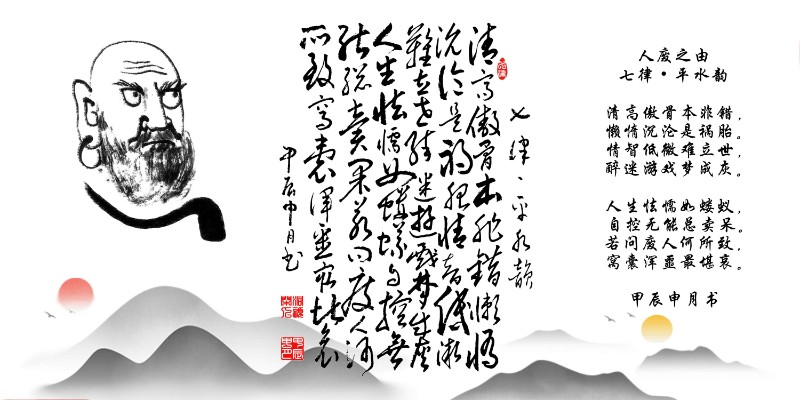 七律·平水韵
清高傲骨本非错懒惰
沉沦是祸胎情智低微
难立世醉迷游戏梦成灰
人生怯懦如蝼蚁自控无
能总卖呆若问废人何
所致窝囊浑噩最堪哀
甲辰申月书
人废之由
七律·平水韵
清高傲骨本非错，
懒惰沉沦是祸胎。
情智低微难立世，
醉迷游戏梦成灰。
人生怯懦如蝼蚁，
自控无能总卖呆。
若问废人何所致，
窝囊浑噩最堪哀。
甲辰申月书